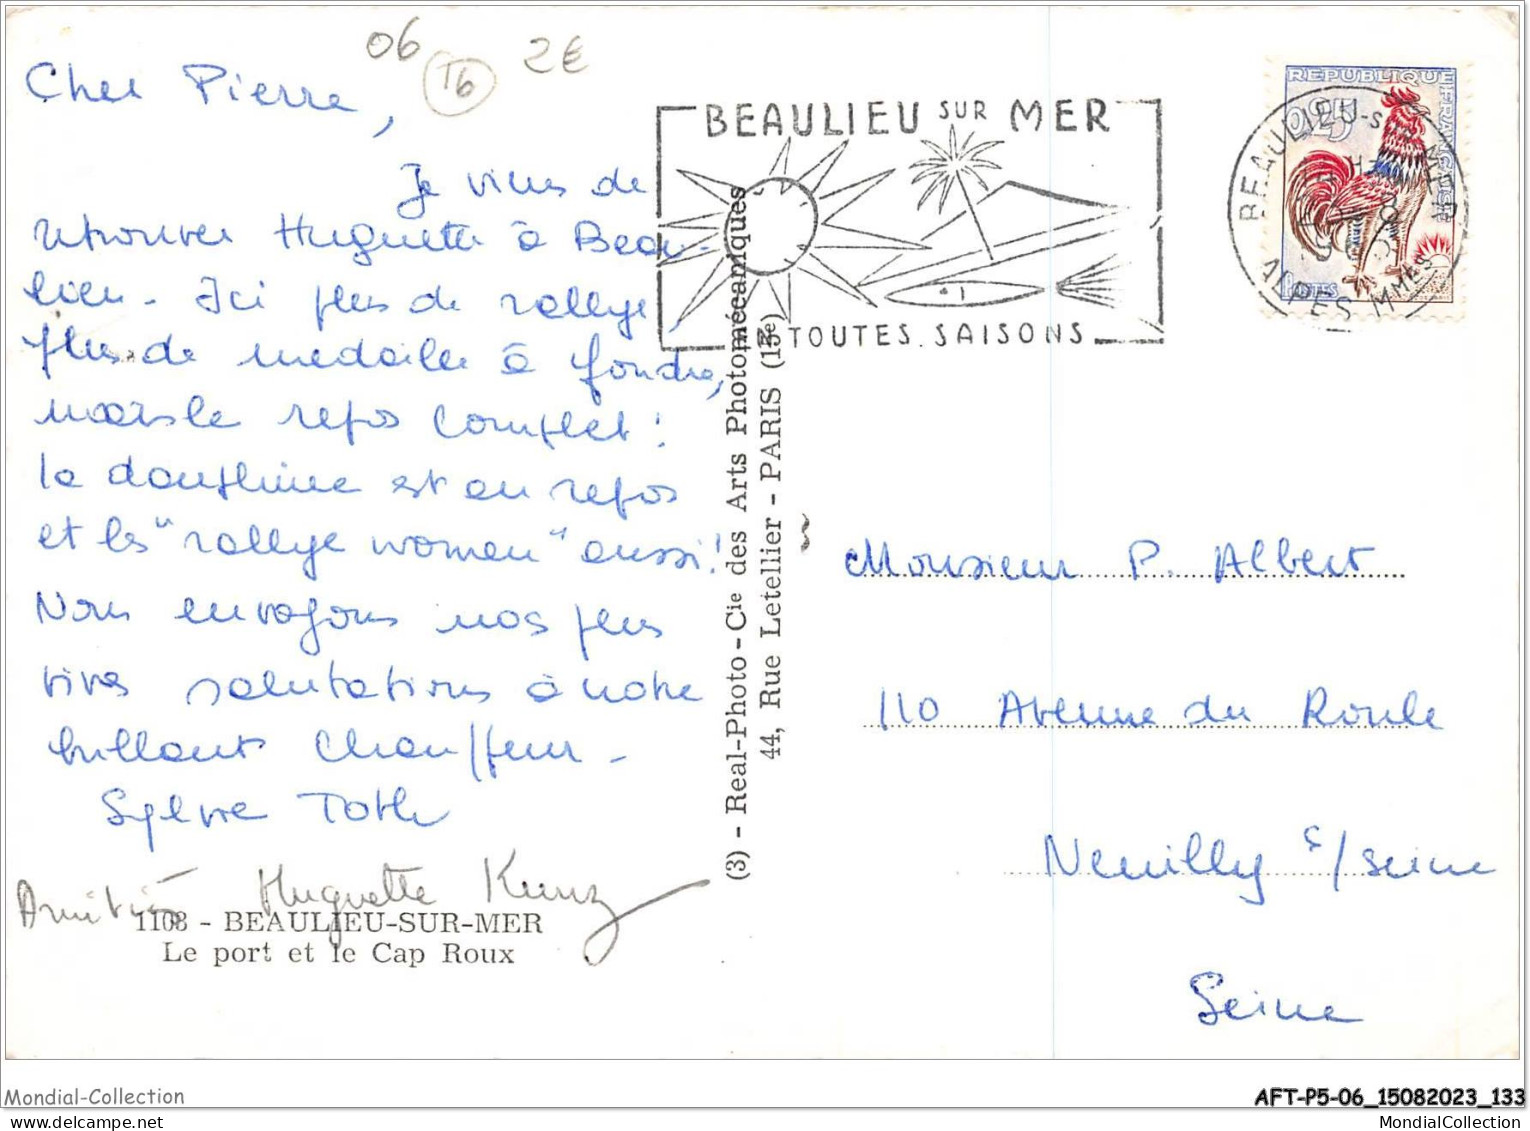 06 T6 2€
Cher Pierre,
Je viens de
retrouver Huguette à Beau-
lieu - Ici plus de rallye,
plus de medailles à fondre,
mais le repos complet!
la dauphine est en repos
et les "rallye women" aussi!
Nous envoyons nos plus
vives salutations à notre
brillant chauffeur -
Sylvie Toth
Amitiés Huguette Kunz
1108 - BEAULIEU-SUR-MER
Le port et le Cap Roux
(3) - Real-Photo - Cie des Arts Photomécaniques
44, Rue Letellier - PARIS (15e)
BEAULIEU SUR MER
TOUTES SAISONS
REPUBLIQUE FRANÇAISE
0,25
POSTES
BEAULIEU-SUR-MER
ALPES MMES
Monsieur P. Albert
110 Avenue du Roule
Neuilly s/seine
Seine
Mondial-Collection
AFT-P5-06_15082023_133
www.mondial-collection.com
MondialCollection